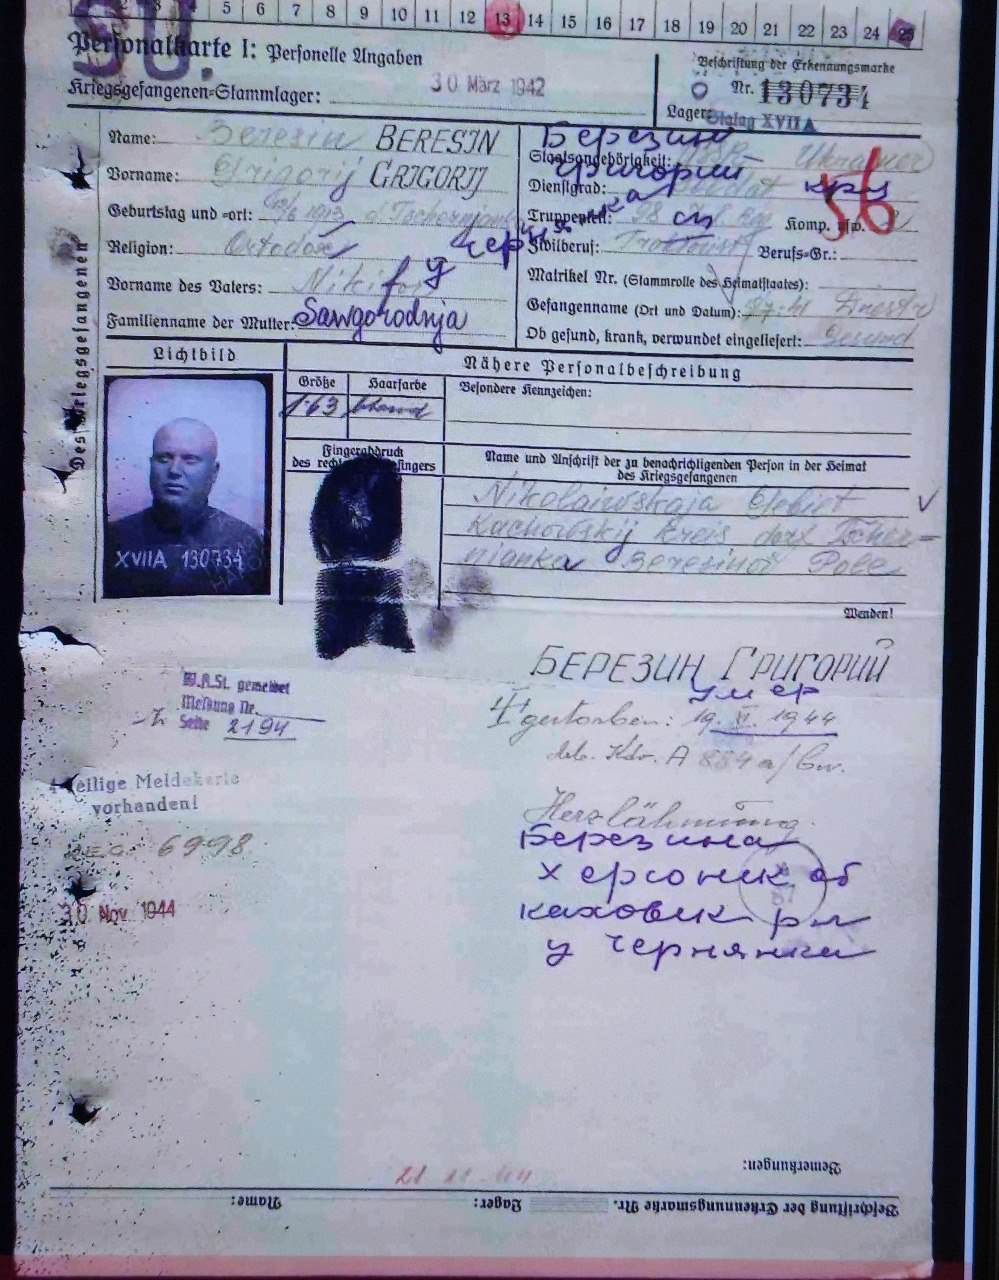 5 6 7 8 9 10 11 12 13 14 15 16 17 18 19 20 21 22 23 24 25
SU.
Personalkarte I: Personelle Angaben
Kriegsgefangenen-Stammlager:
30. März 1942
Beschriftung der Erkennungsmarke
Nr. 130734
Lager: Stalag XVII A
Des Kriegsgefangenen
Name: Beresin BERESIN
Vorname: Grigorij GRIGORIJ
Geburtstag und -ort:
Religion: Ortodox
Vorname des Vaters: Nikifor
Familienname der Mutter: Sawgorodnja
Березин
Staatsangehörigkeit: Ukrainer
Григорий
Dienstgrad: Soldat
Truppenteil: Komp. usw.:
56
Zivilberuf: Traktorist Berufs-Gr.:
Matrikel Nr. (Stammrolle des Heimatstaates):
Gefangenname (Ort und Datum):
Ob gesund, krank, verwundet eingeliefert: Gesund
Lichtbild
XVIIA 130734
Nähere Personalbeschreibung
Größe Haarfarbe Besondere Kennzeichen:
1.63 blond
Fingerabdruck
des rechten Zeigefingers
Name und Anschrift der zu benachrichtigenden Person in der Heimat
des Kriegsgefangenen
Nikolaiwskaja Gebiet
Kachowskij Kreis dorf Tscher-
nianka Beresinoi Pole
Wenden!
БЕРЕЗИН ГРИГОРИЙ
умер
gestorben: 19. XI. 1944
Herzlähmung
W.A.St. gemeldet
Meldung Nr.
Seite 2194
4-teilige Meldekarte
vorhanden!
6998
30. Nov. 1944
Березина
Херсонск об
каховск р н
у Чернянка
21 11 44
Bemerkungen:
Beschriftung der Erkennungsmarke Nr. Lager: Name: